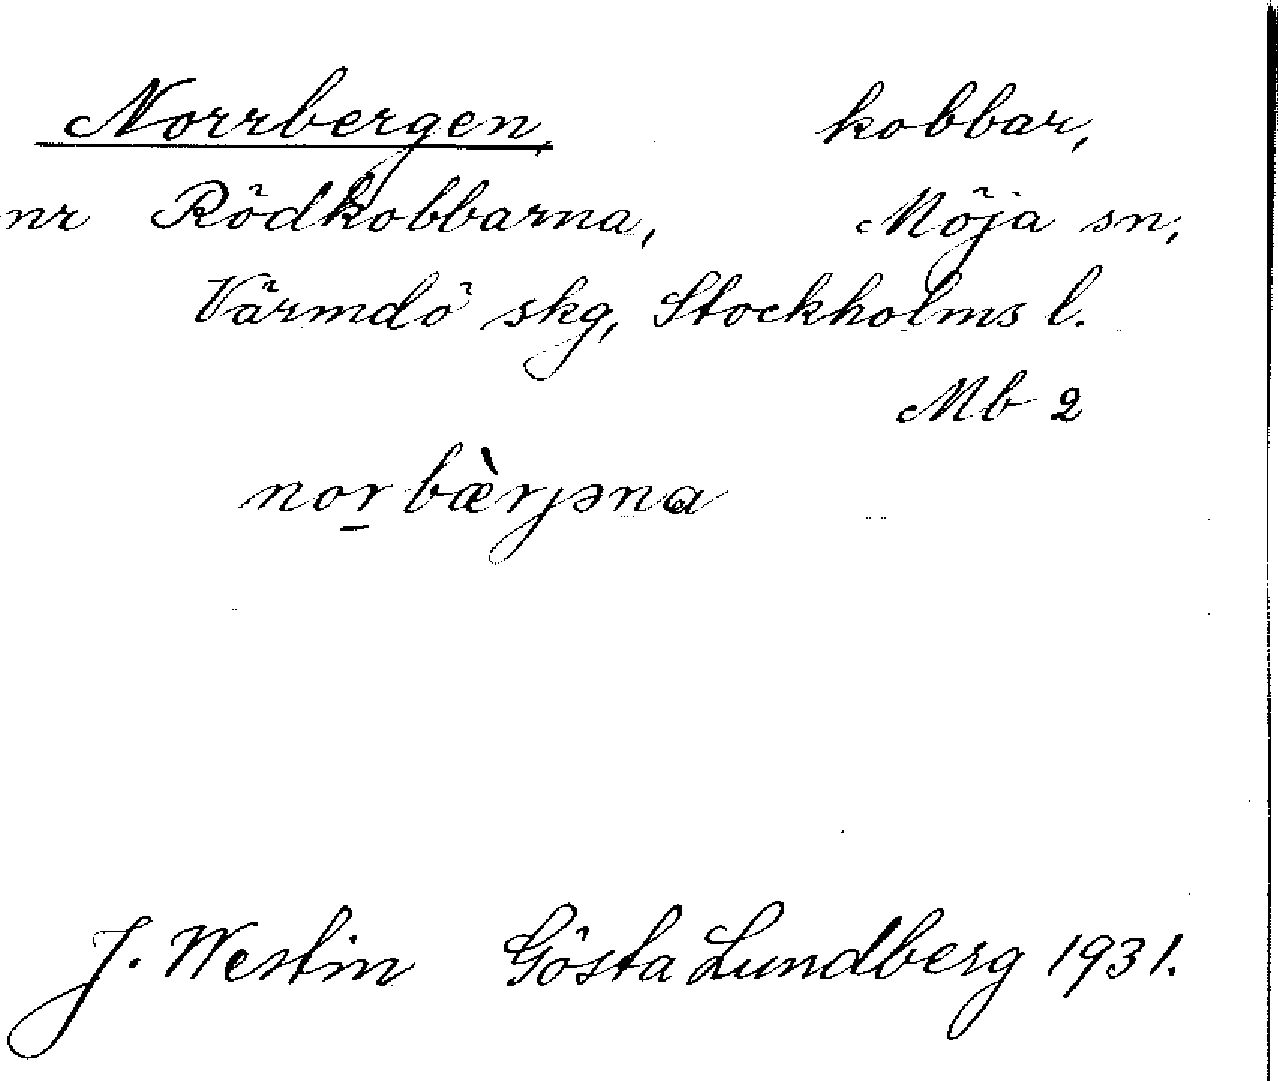 Norrbergen, kobbar,
nr Rödkobbarna, Möja sn,
Värmdö skg, Stockholms l.
Mb 2
nor̲bæ̀rjəna
J. Westin Gösta Lundberg 1931.